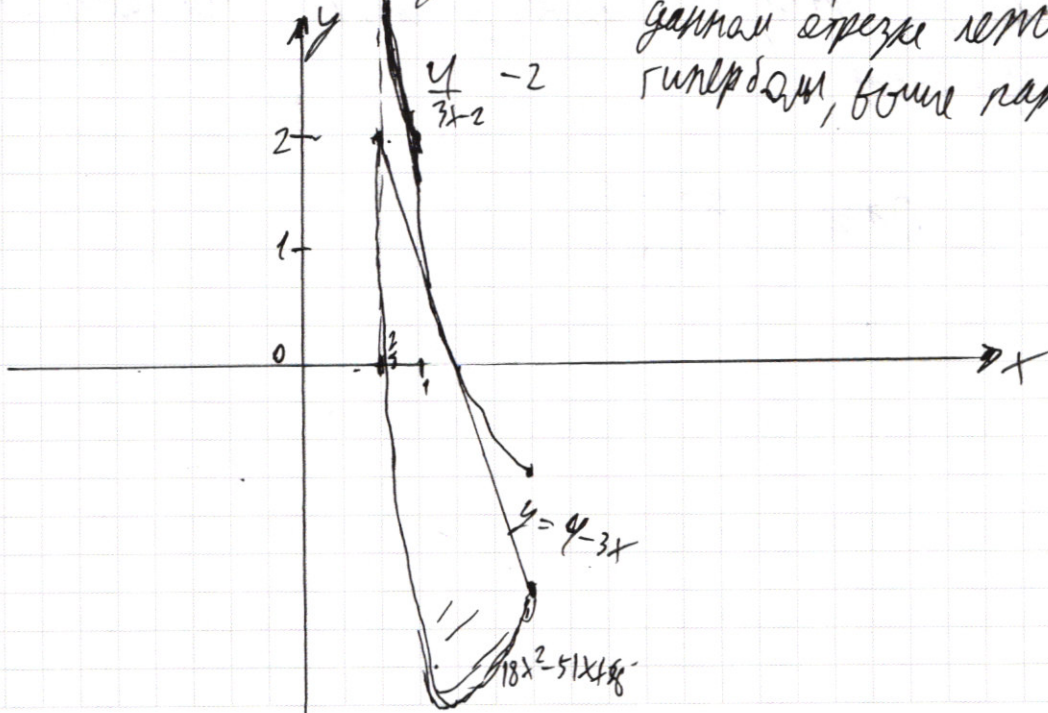 y
данном отрезке
гиперболы, выше
4/(3x-2) -2
2
1
0
2/3
1
x
y = 4-3x
18x²-51x+28